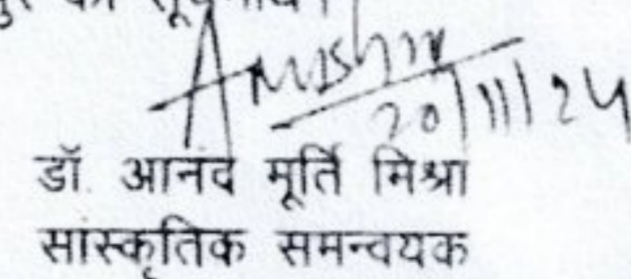 की सूचनार्थ।
Amishra
20/11/24
डॉ. आनंद मूर्ति मिश्रा
सांस्कृतिक समन्वयक